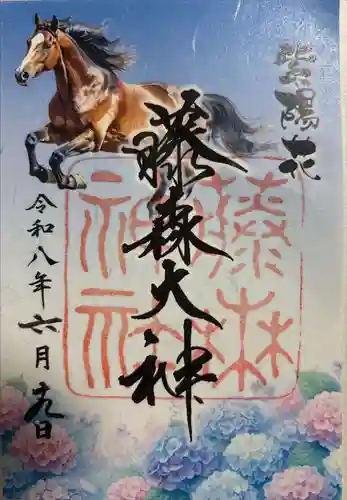 紫陽花
藤森大神
令和八年六月十九日
藤森
神社